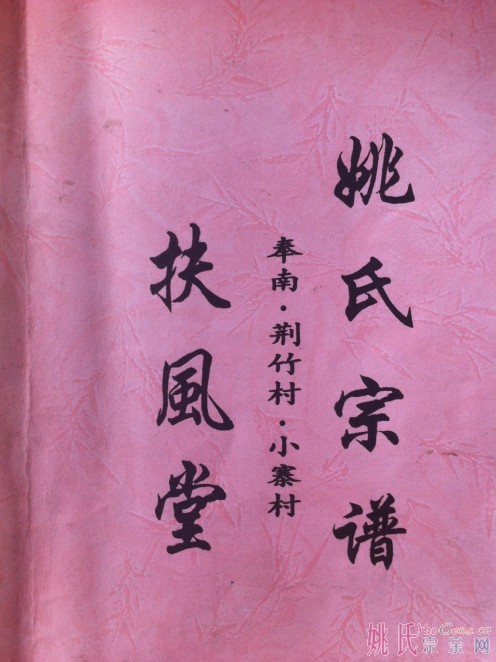 姚氏宗谱
奉南·荆竹村·小寨村
扶風堂
姚氏宗亲网
YaoGens.cn